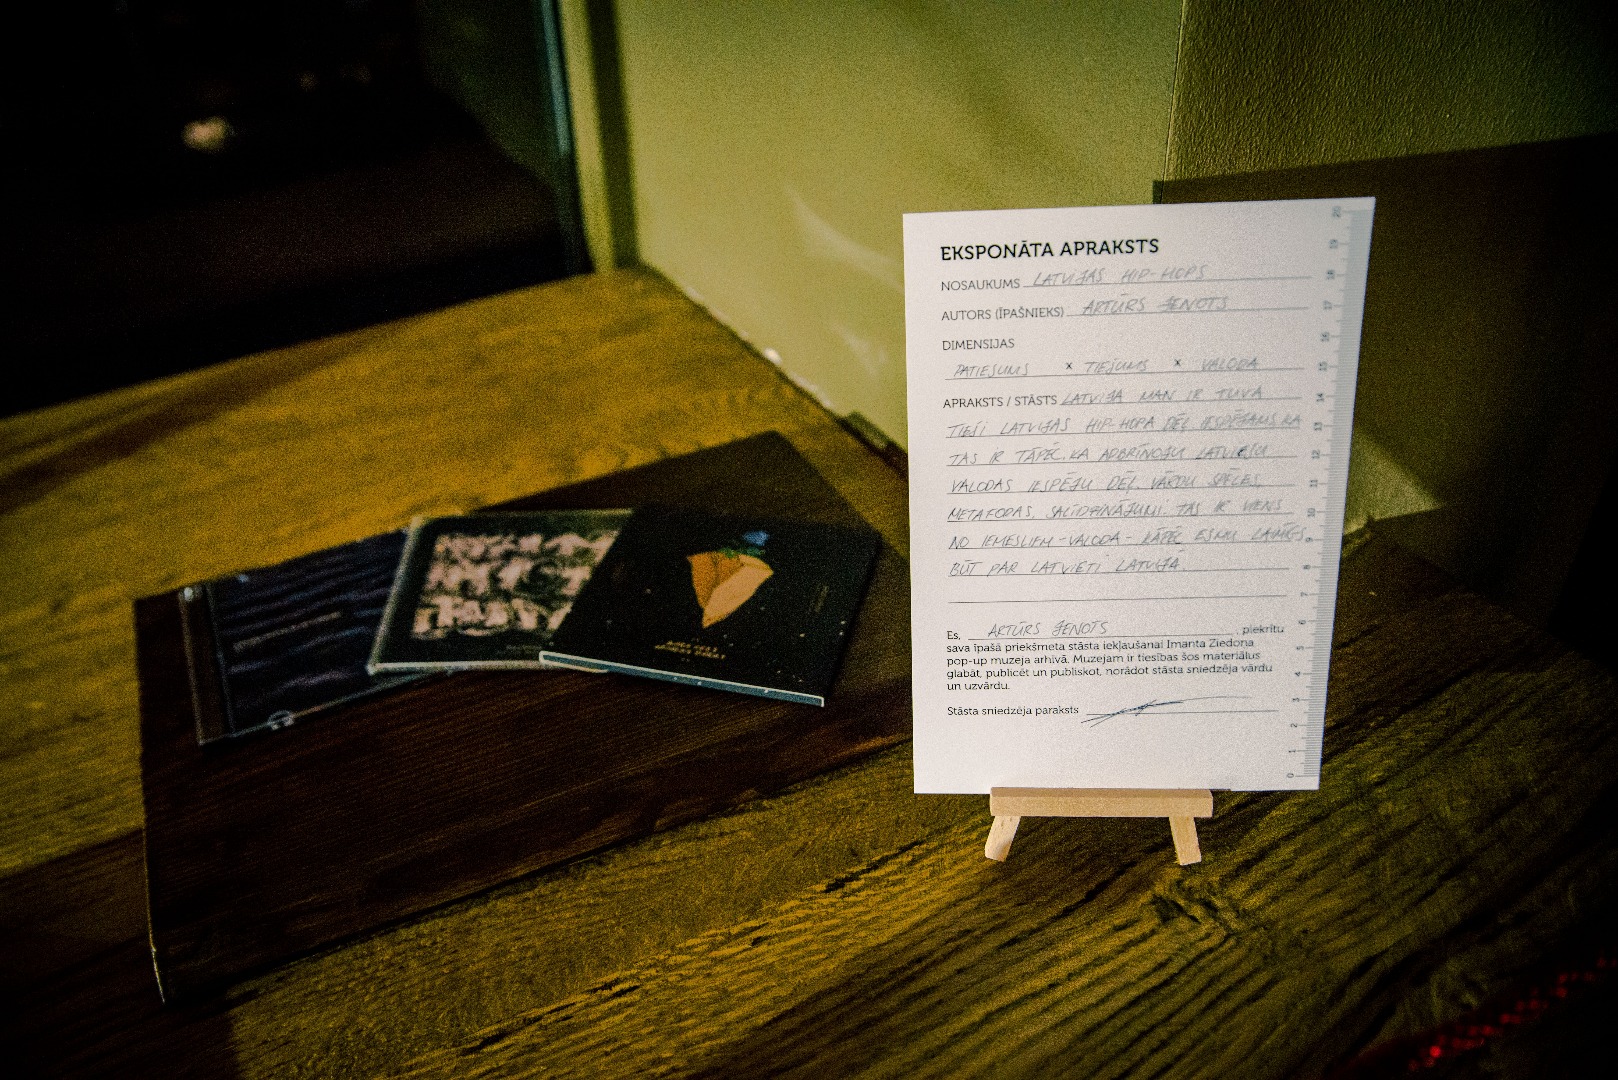 EKSPONĀTA APRAKSTS
NOSAUKUMS LATVIJAS HIP-HOPS
AUTORS (ĪPAŠNIEKS) ARTŪRS ŽENOTS
DIMENSIJAS
PATIESUMS x TIEŠUMS x VALODA
APRAKSTS / STĀSTS LATVIJA MAN IR TUVA
TIEŠI LATVIJAS HIP-HOPA DĒĻ. IESPĒJAMS KA
TAS IR TĀPĒC, KA APBRĪNOJU LATVIEŠU
VALODAS IESPĒJU DĒĻ. VĀRDU SPĒLES,
METAFORAS, SALĪDZINĀJUMI. TAS IR VIENS
NO IEMESLIEM - VALODA - KĀPĒC ESMU LAIMĪGS
BŪT PAR LATVIETI LATVIJĀ.
Es, ARTŪRS ŽENOTS, piekrītu
sava īpašā priekšmeta stāsta iekļaušanai Imanta Ziedoņa
pop-up muzeja arhīvā. Muzejam ir tiesības šos materiālus
glabāt, publicēt un publiskot, norādot stāsta sniedzēja vārdu
un uzvārdu.
Stāsta sniedzēja paraksts
20
19
18
17
16
15
14
13
12
11
10
9
8
7
6
5
4
3
2
1
0